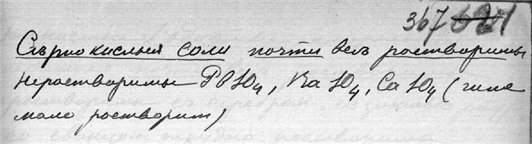 367
Сѣрнокислыя соли почти всѣ растворимы
Нерастворимы PbSO4, BaSO4, CaSO4 (гипс
мало растворим)